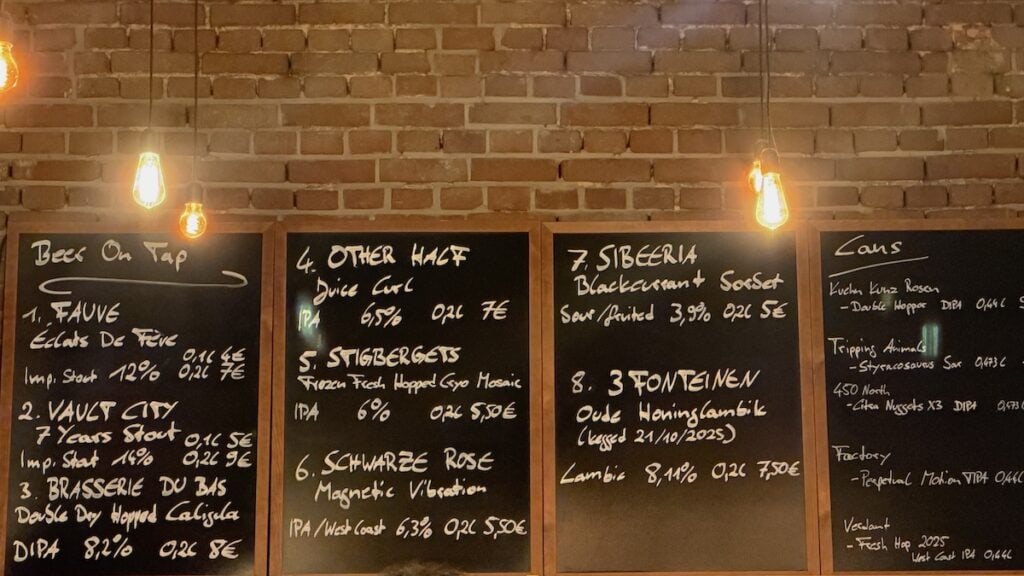 Beer On Tap
1. FAUVE
Éclats De Fève
0,1l 4€
Imp. Stout 12% 0,2l 7€
2. VAULT CITY
7 Years Stout
0,1l 5€
Imp. Stout 14% 0,2l 9€
3. BRASSERIE DU BAS
Double Dry Hopped Caligula
DIPA 8,2% 0,2l 8€
4. OTHER HALF
Juice Curl
IPA 6,5% 0,2l 7€
5. STIGBERGETS
Frozen Fresh Hopped Cryo Mosaic
IPA 6% 0,2l 5,50€
6. SCHWARZE ROSE
Magnetic Vibration
IPA/West Coast 6,3% 0,2l 5,50€
7. SIBEERIA
Blackcurrant Sorbet
Sour/fruited 3,9% 0,2l 5€
8. 3 FONTEINEN
Oude Honinglambik
(kegged 21/10/2025)
Lambic 8,11% 0,2l 7,50€
Cans
Kuehn Kunz Rosen
- Double Hopper DIPA 0,44l 5
Tripping Animals
- Styracosaurs Sour 0,473l
450 North
- Citra Nuggets X3 DIPA 0,473l
Factory
- Perpetual Motion TIPA 0,44l
Verdant
- Fresh Hop 2025
West Coast IPA 0,44l